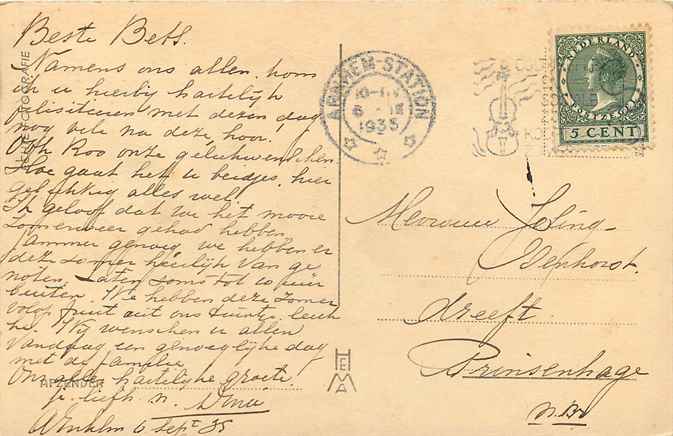 Beste Betts.
Namens ons allen, kom
ik u hierbij hartelijk
felisiteeren met dezen dag
nog vele na deze, hoor.
Ook Koo onze gelukwenschen
Hoe gaat het u beidjes, hier
gelukkig alles wel.
Ik geloof dat we het mooie
zomerweer gehad hebben
jammer genoeg, we hebben er
deze zomer heerlijk van ge
noten, zaten soms tot 10 uur
buiten. We hebben deze zomer
volop fruit uit ons tuintje, leuk
hè. Wij wenschen u allen
vandaag een genoegelijke dag
met de familie.
Ons aller hartelijke groete
je liefh. n.
Arnhem 6 Sept 35
AFZENDER
HEMA
ARNHEM-STATION
1935
NEDERLAND
5 CENT
Mevrouw Jesing-
Wephorst.
Dreeft.
Prinsenhage
N.Br.